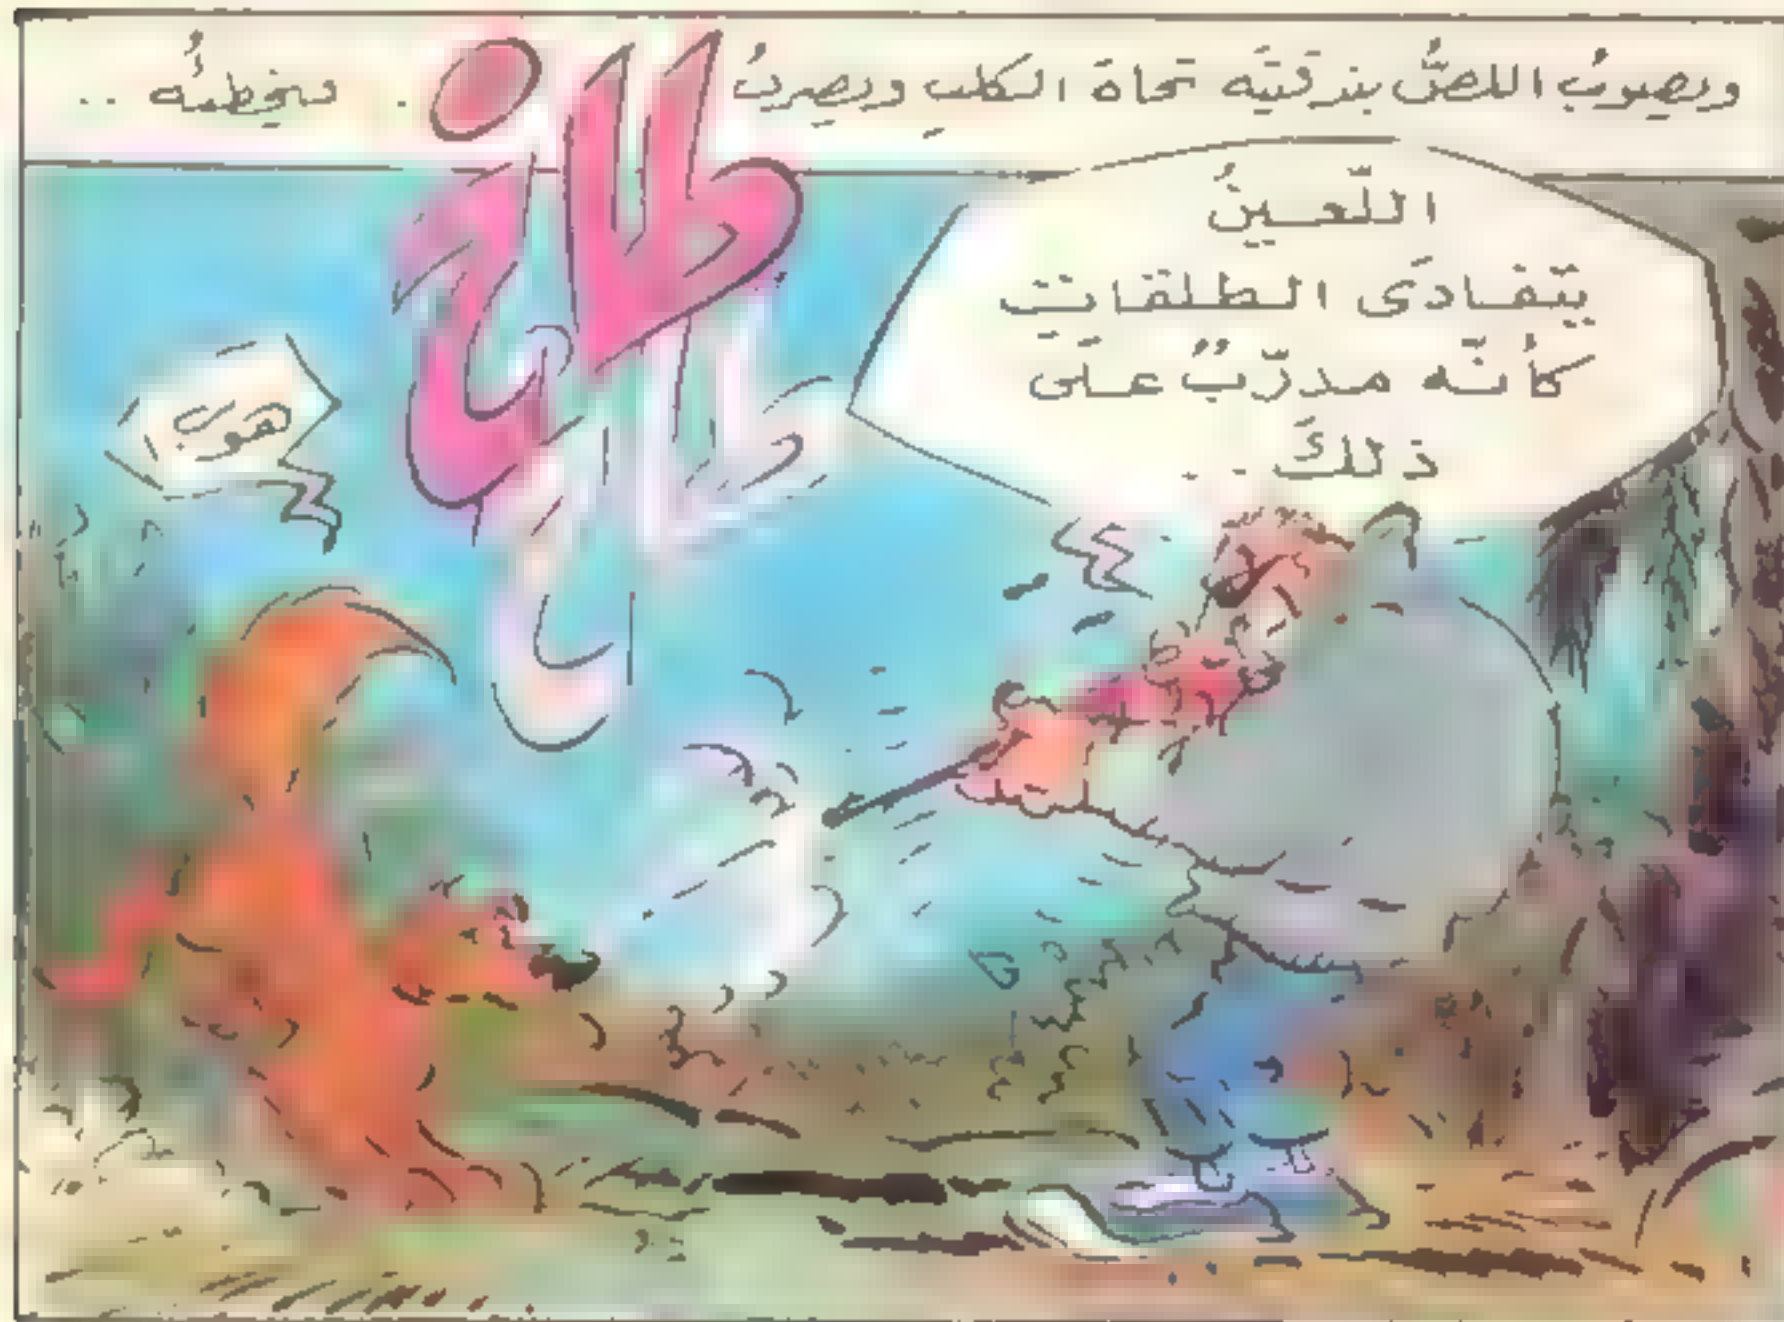 ويصوبُ اللصُّ بندقيتَه تجاهَ الكلبِ ويصربُ . فيخطئُه ..
طاخ
طاخ
اللّعينُ
يتفادَى الطلقاتِ
كأنّه مدرّبٌ علَى
ذلكَ . .
هوبَ